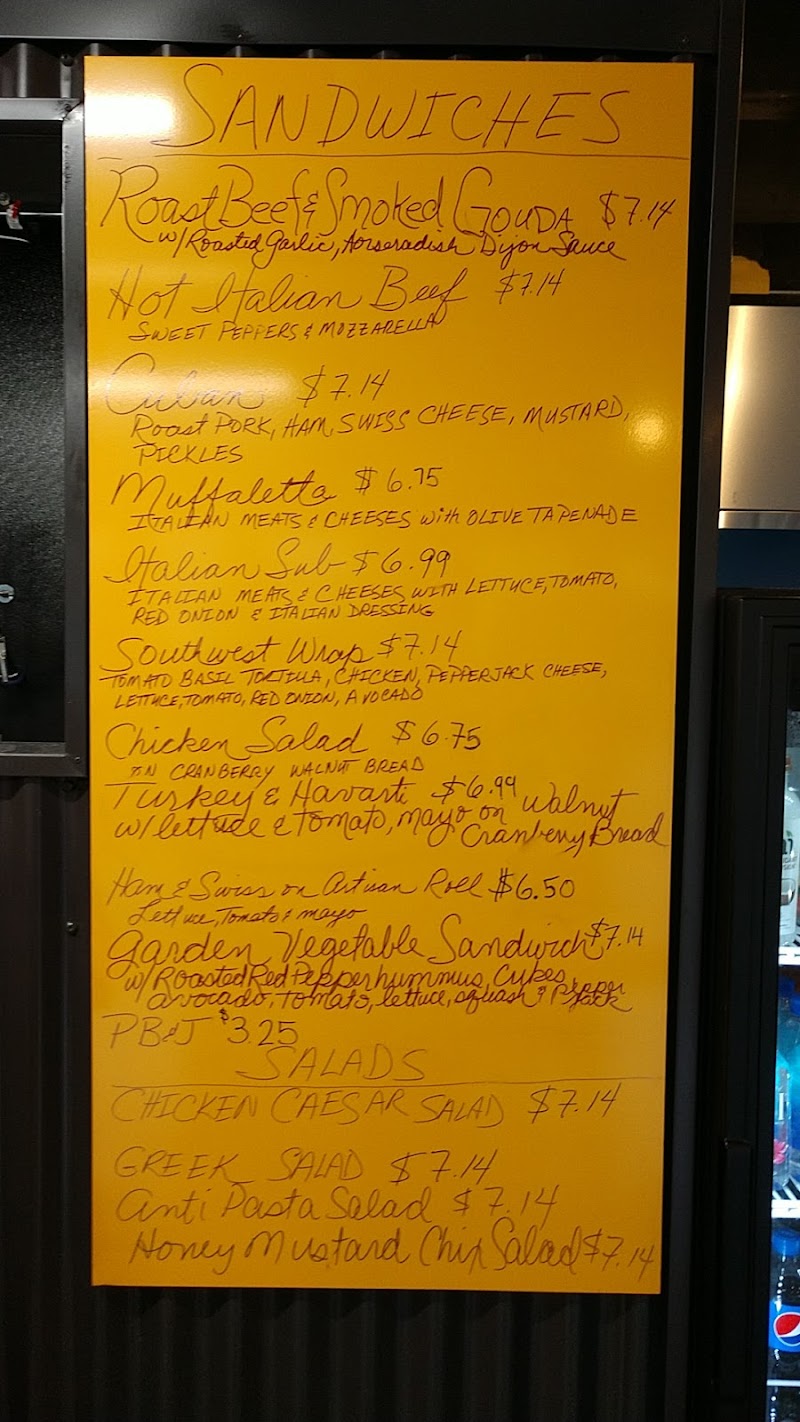 SANDWICHES
Roast Beef & Smoked Gouda $7.14
w/Roasted Garlic, Horseradish Dijon Sauce
Hot Italian Beef $7.14
SWEET PEPPERS & MOZZARELLA
Cuban $7.14
Roast PORK, HAM, SWISS CHEESE, MUSTARD,
PICKLES
Muffaletta $6.75
ITALIAN MEATS & CHEESES with OLIVE TAPENADE
Italian Sub $6.99
ITALIAN MEATS & CHEESES WITH LETTUCE, TOMATO,
RED ONION & ITALIAN DRESSING
Southwest Wrap $7.14
TOMATO BASIL TORTILLA, CHICKEN, PEPPERJACK CHEESE,
LETTUCE, TOMATO, RED ONION, AVOCADO
Chicken Salad $6.75
ON CRANBERRY WALNUT BREAD
Turkey & Havarti $6.99
w/ lettuce & tomato, mayo on Walnut
Cranberry Bread
Ham & Swiss on Artisan Roll $6.50
Lettuce, Tomato & mayo
Garden Vegetable Sandwich $7.14
w/ Roasted Red Pepper hummus, Cukes,
avocado, tomato, lettuce, squash & Pepper
Jack
PB&J $3.25
SALADS
CHICKEN CAESAR SALAD $7.14
GREEK SALAD $7.14
Anti Pasta Salad $7.14
Honey Mustard Chix Salad $7.14